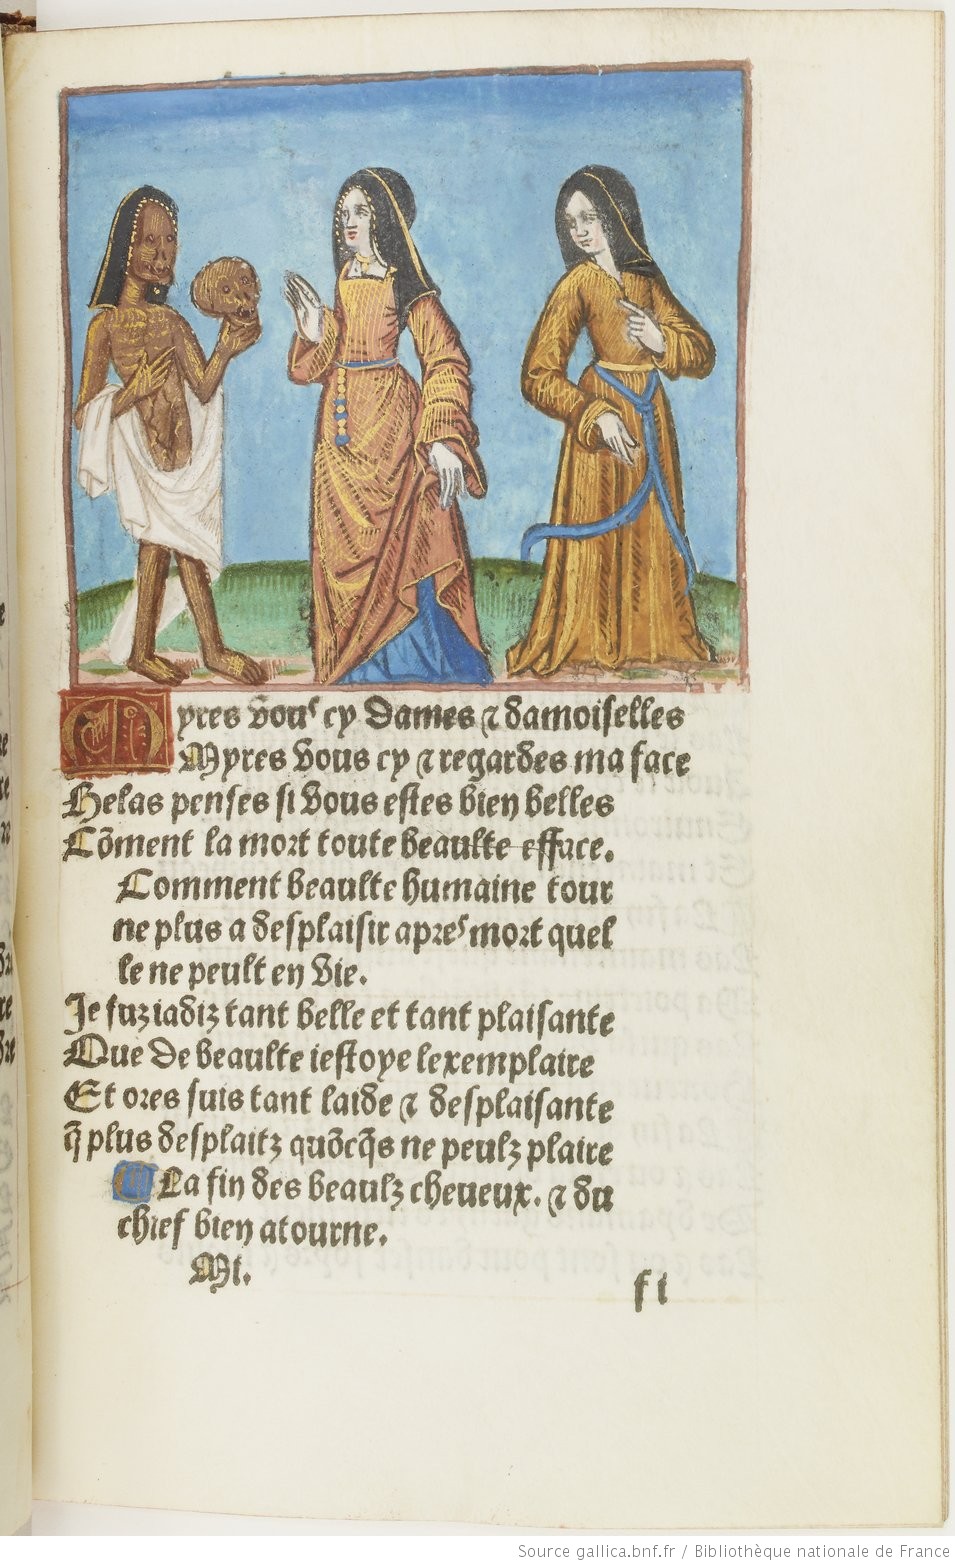 Myres vous cy Dames ⁊ damoiselles
Myres vous cy ⁊ regardes ma face
Helas penses si vous estes bien belles
Cõment la mort toute beaulte efface.
Comment beaulte humaine tour
ne plus a desplaisir apres mort quel
le ne peult en vie.
Je fuz iadiz tant belle et tant plaisante
Que de beaulte iestoye lexemplaire
Et ores suis tant laide ⁊ desplaisante
q̃ plus desplaitz quõcq̃s ne peulz plaire
La fin des beaulz cheueux. ⁊ du
chief bien atourne.
Mi.
f i
Source gallica.bnf.fr / Bibliothèque nationale de France